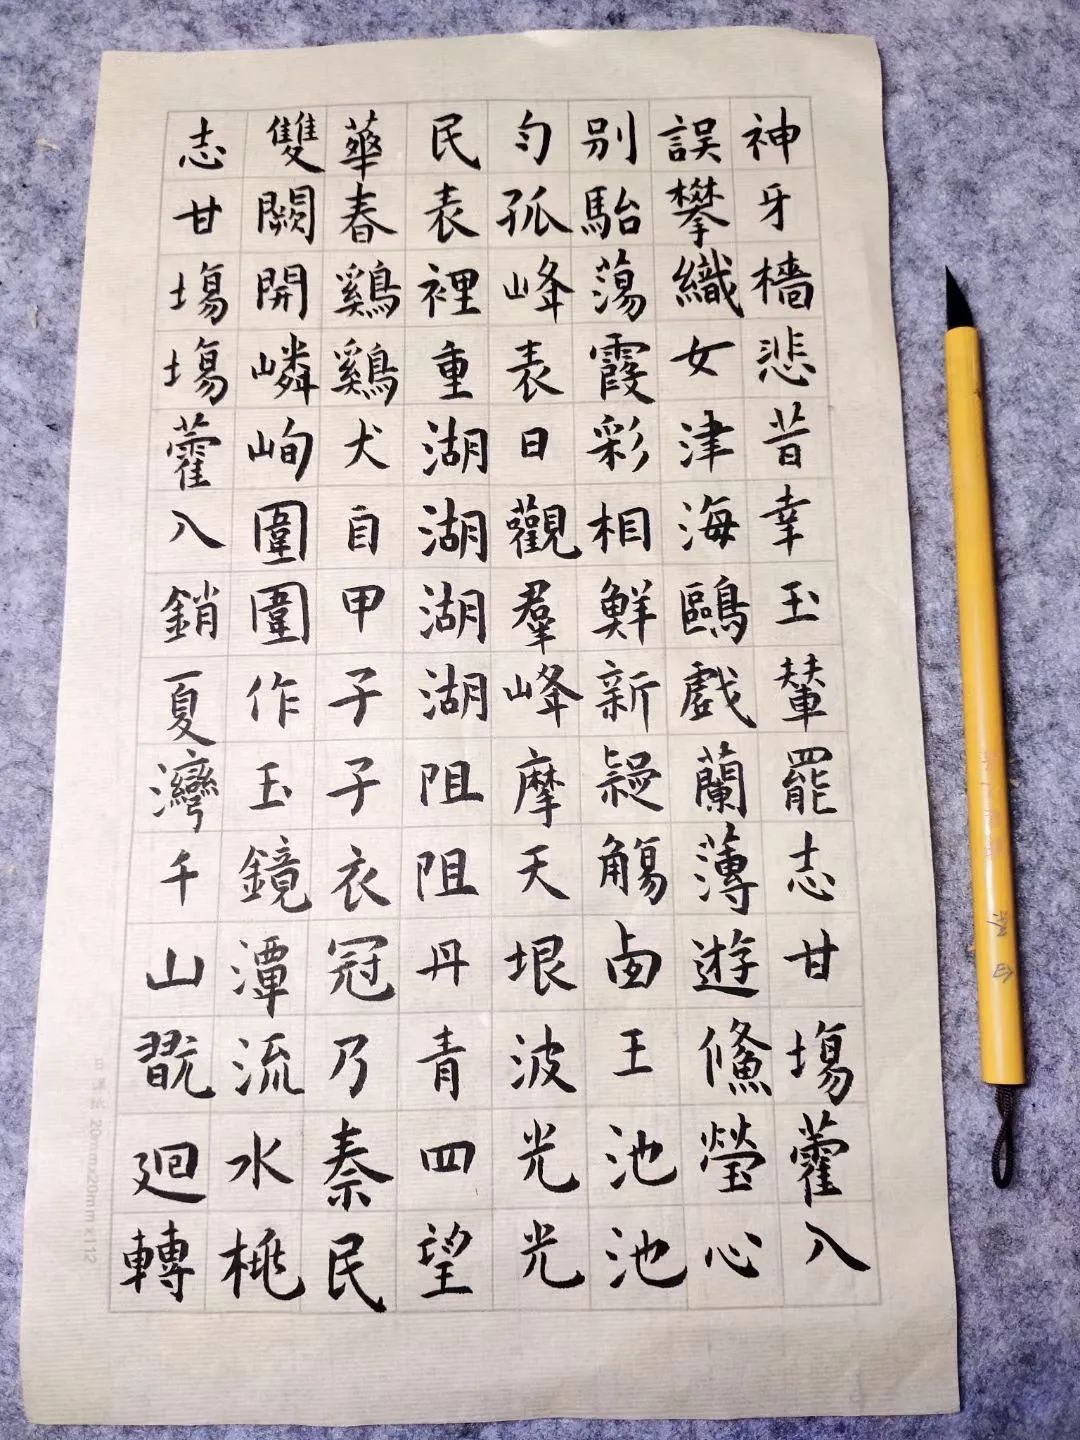 神牙檣悲昔幸玉輦罷志甘塲藿入
誤攀織女津海鷗戲蘭薄遊鯈瑩心
別駘蕩霞彩相鮮新觴卤王池池
勻孤峰表日觀羣峰摩天垠波光光
民表裡重湖湖湖湖阻阻丹青四望
華春鷄鷄犬自甲子子衣冠乃秦民
雙闕開嶙峋圍圍作玉鏡潭流水桃
志甘塲塲藿入銷夏灣千山翫廻轉
20mm×20mm×112